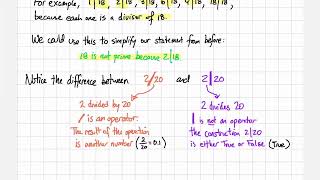 For example, 1|18, 2|18, 3|18, 6|18, 9|18, 18|18,
because each one is a divisor of 18.
We could use this to simplify our statement from before:
18 is not prime because 2|18
Notice the difference between 2/20 and 2|20
2 divided by 20
/ is an operator.
The result of the operation
is another number (2/20 = 0.1)
2 divides 20
| is not an operator
the construction 2|20
is either True or False (True)